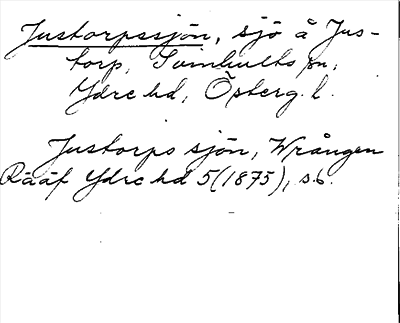 Justorpssjön, sjö å Jus-
torp, Svinhults sn,
Ydre hd, Österg. l.
Justorps sjön, Wrången
Rääf Ydre hd 5(1875), s. 6.